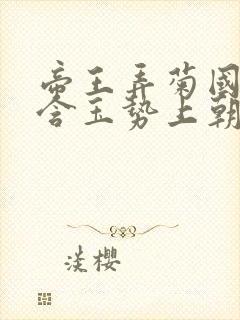 帝王弄菊國
含玉勢上朝
淡櫻